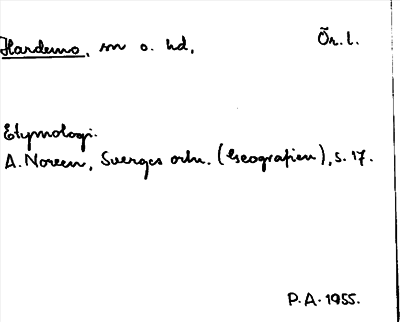 Hardemo, sn o. hd, Ör. l.
Etymologi.
A. Noreen, Sveriges ortn. (Geografien), s. 17.
P.A. 1955.